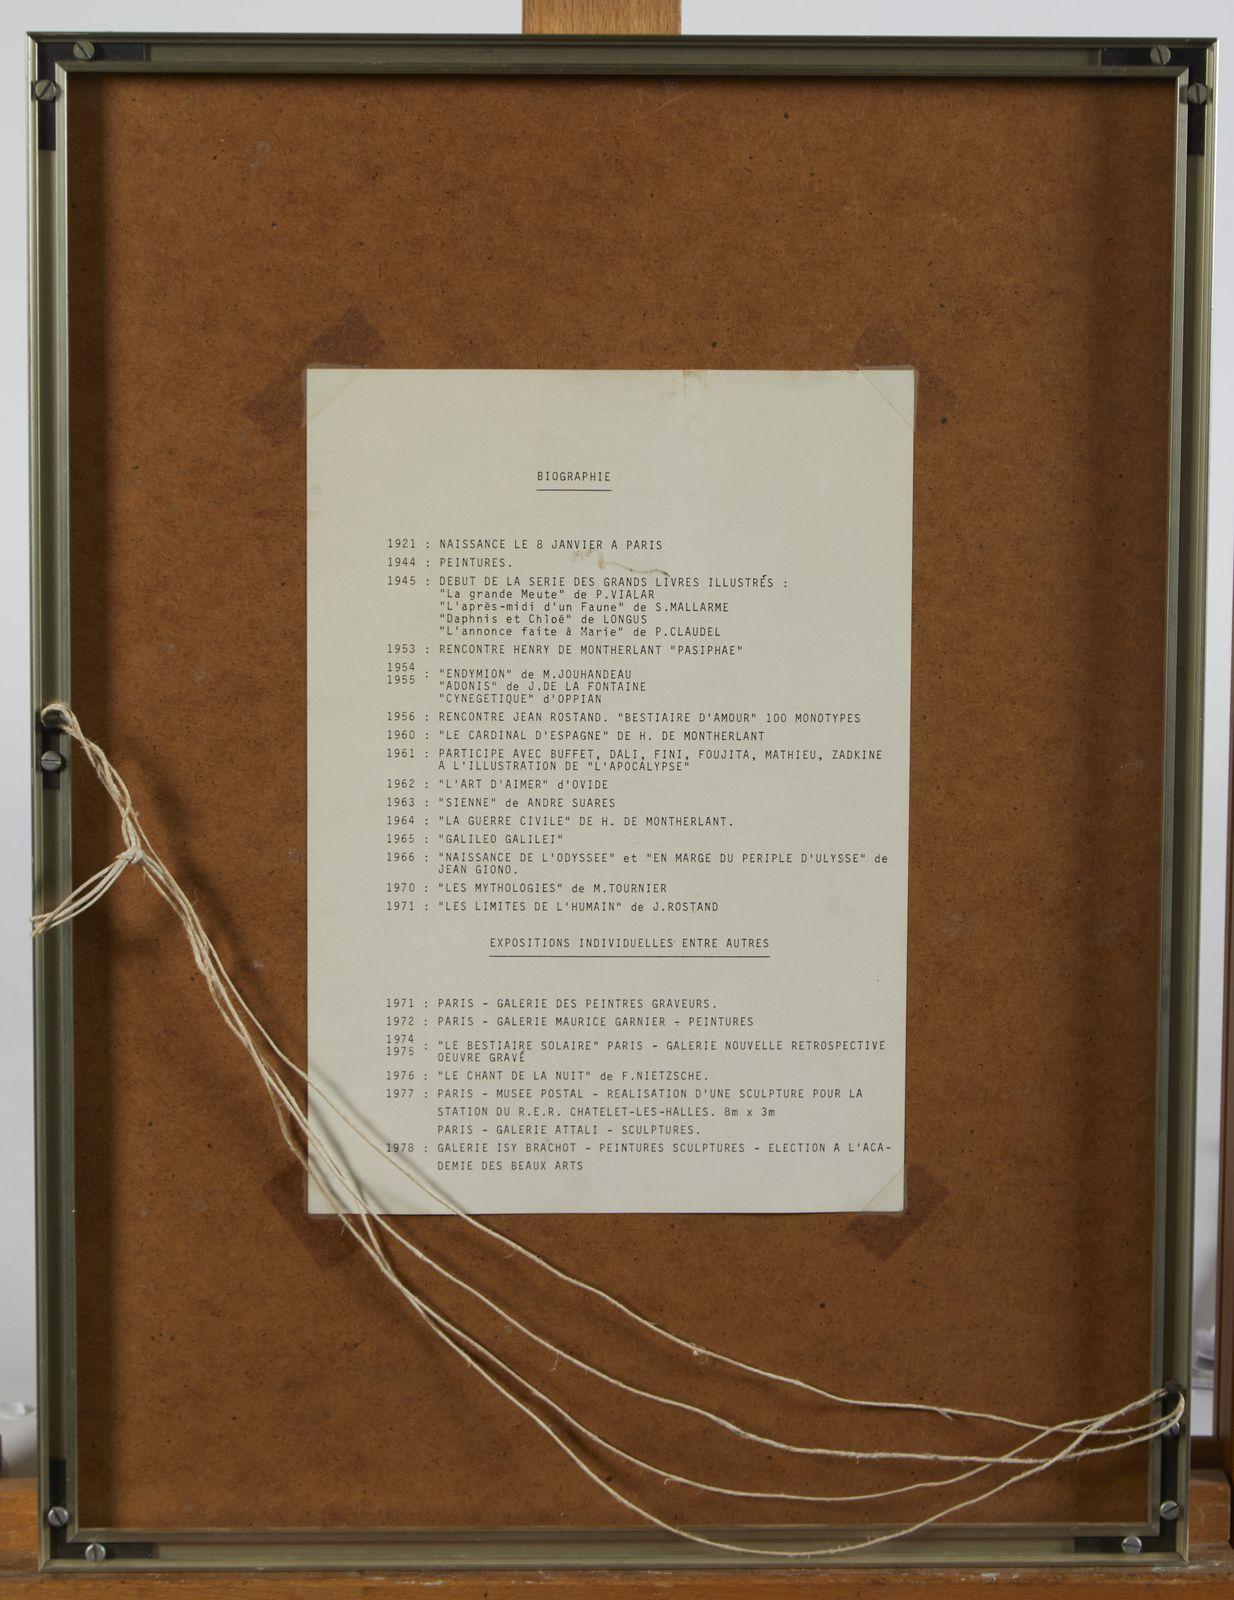 BIOGRAPHIE
1921 : NAISSANCE LE 8 JANVIER A PARIS
1944 : PEINTURES.
1945 : DEBUT DE LA SERIE DES GRANDS LIVRES ILLUSTRÉS :
"La grande Meute" de P.VIALAR
"L'après-midi d'un Faune" de S.MALLARME
"Daphnis et Chloé" de LONGUS
"L'annonce faite à Marie" de P.CLAUDEL
1953 : RENCONTRE HENRY DE MONTHERLANT "PASIPHAE"
1954
1955 : "ENDYMION" de M.JOUHANDEAU
"ADONIS" de J.DE LA FONTAINE
"CYNEGETIQUE" d'OPPIAN
1956 : RENCONTRE JEAN ROSTAND. "BESTIAIRE D'AMOUR" 100 MONOTYPES
1960 : "LE CARDINAL D'ESPAGNE" DE H. DE MONTHERLANT
1961 : PARTICIPE AVEC BUFFET, DALI, FINI, FOUJITA, MATHIEU, ZADKINE
A L'ILLUSTRATION DE "L'APOCALYPSE"
1962 : "L'ART D'AIMER" d'OVIDE
1963 : "SIENNE" de ANDRE SUARES
1964 : "LA GUERRE CIVILE" DE H. DE MONTHERLANT.
1965 : "GALILEO GALILEI"
1966 : "NAISSANCE DE L'ODYSSEE" et "EN MARGE DU PERIPLE D'ULYSSE" de
JEAN GIONO.
1970 : "LES MYTHOLOGIES" de M.TOURNIER
1971 : "LES LIMITES DE L'HUMAIN" de J.ROSTAND
EXPOSITIONS INDIVIDUELLES ENTRE AUTRES
1971 : PARIS - GALERIE DES PEINTRES GRAVEURS.
1972 : PARIS - GALERIE MAURICE GARNIER - PEINTURES
1974
1975 : "LE BESTIAIRE SOLAIRE" PARIS - GALERIE NOUVELLE RETROSPECTIVE
OEUVRE GRAVÉ
1976 : "LE CHANT DE LA NUIT" de F.NIETZSCHE.
1977 : PARIS - MUSEE POSTAL - REALISATION D'UNE SCULPTURE POUR LA
STATION DU R.E.R. CHATELET-LES-HALLES. 8m x 3m
PARIS - GALERIE ATTALI - SCULPTURES.
1978 : GALERIE ISY BRACHOT - PEINTURES SCULPTURES - ELECTION A L'ACA-
DEMIE DES BEAUX ARTS